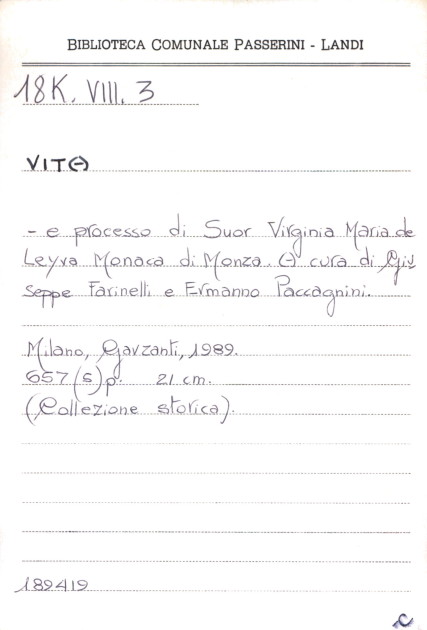 BIBLIOTECA COMUNALE PASSERINI - LANDI
18K. VIII. 3
VITA
- e processo di Suor Virginia Maria de
Leyva Monaca di Monza. A cura di Giu
seppe Farinelli e Ermanno Paccagnini.
Milano, Garzanti, 1989.
657 (5) p. 21 cm.
(Collezione storica).
189419
C